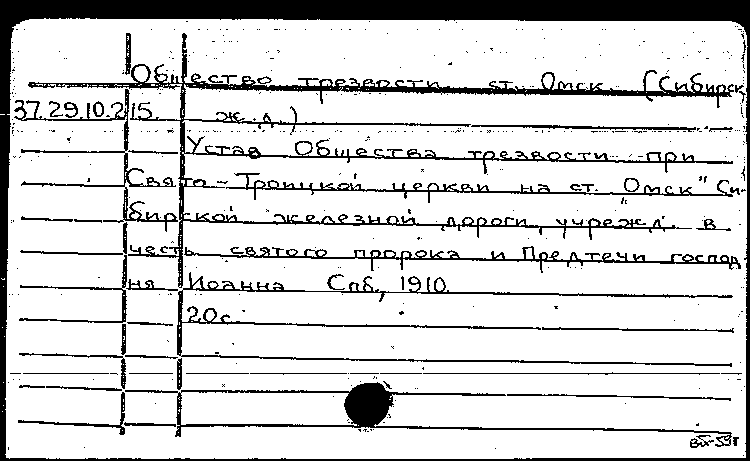 Общество трезвости ст. Омск (Сибирск.
37.29.10.2 15. ж.д.)
Устав Общества трезвости при
Свято-Троицкой церкви на ст. "Омск" Си-
бирской железной дороги, учрежд. в
честь святого пророка и Предтечи господ
ня Иоанна Спб., 1910.
20с.